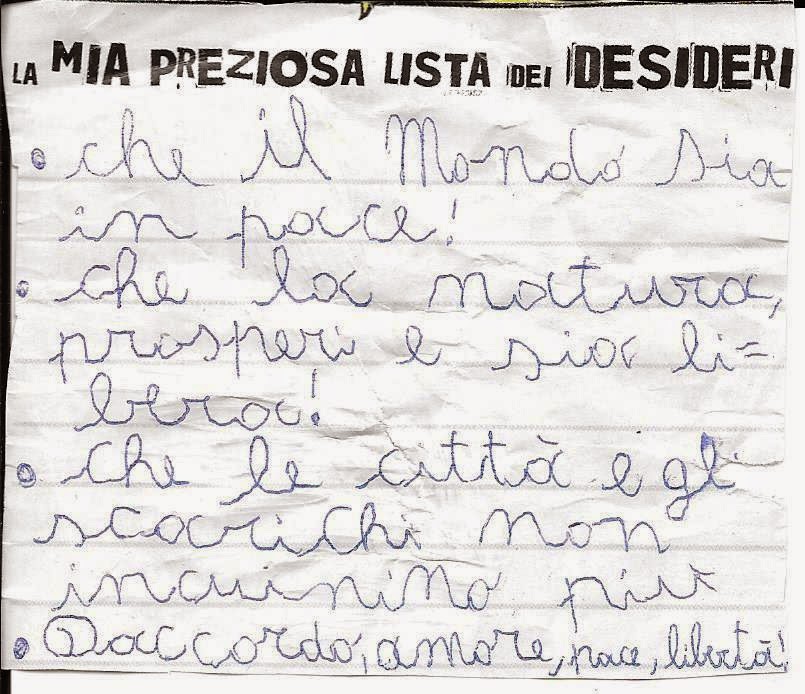 LA MIA PREZIOSA LISTA DEI DESIDERI
• che il Mondo sia
in pace!
• che la natura,
prosperi e sia li=
bera!
• che le città e gli
scarichi non
inquinino più
• D'accordo, amore, pace, libertà!